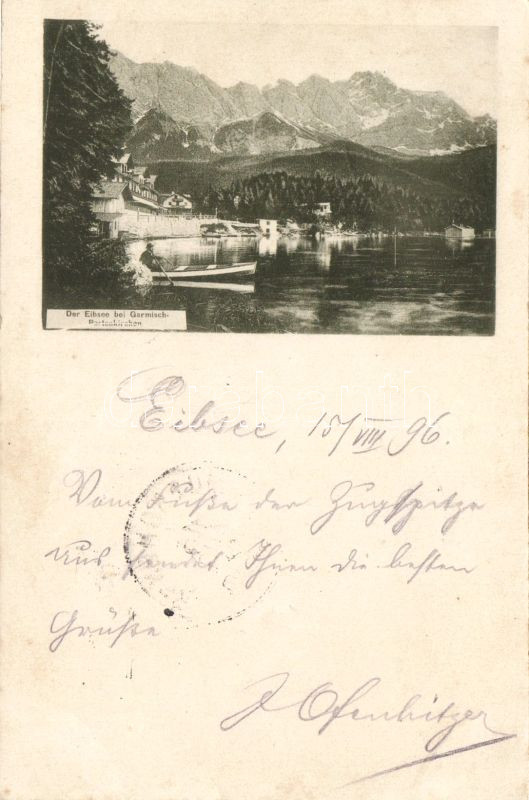 Der Eibsee bei Garmisch-
Partenkirchen
Eibsee, 15/VIII 96.
Vom Fuße der Zugspitze
aus sendet Ihnen die besten
Grüße
J Ofenhitzer